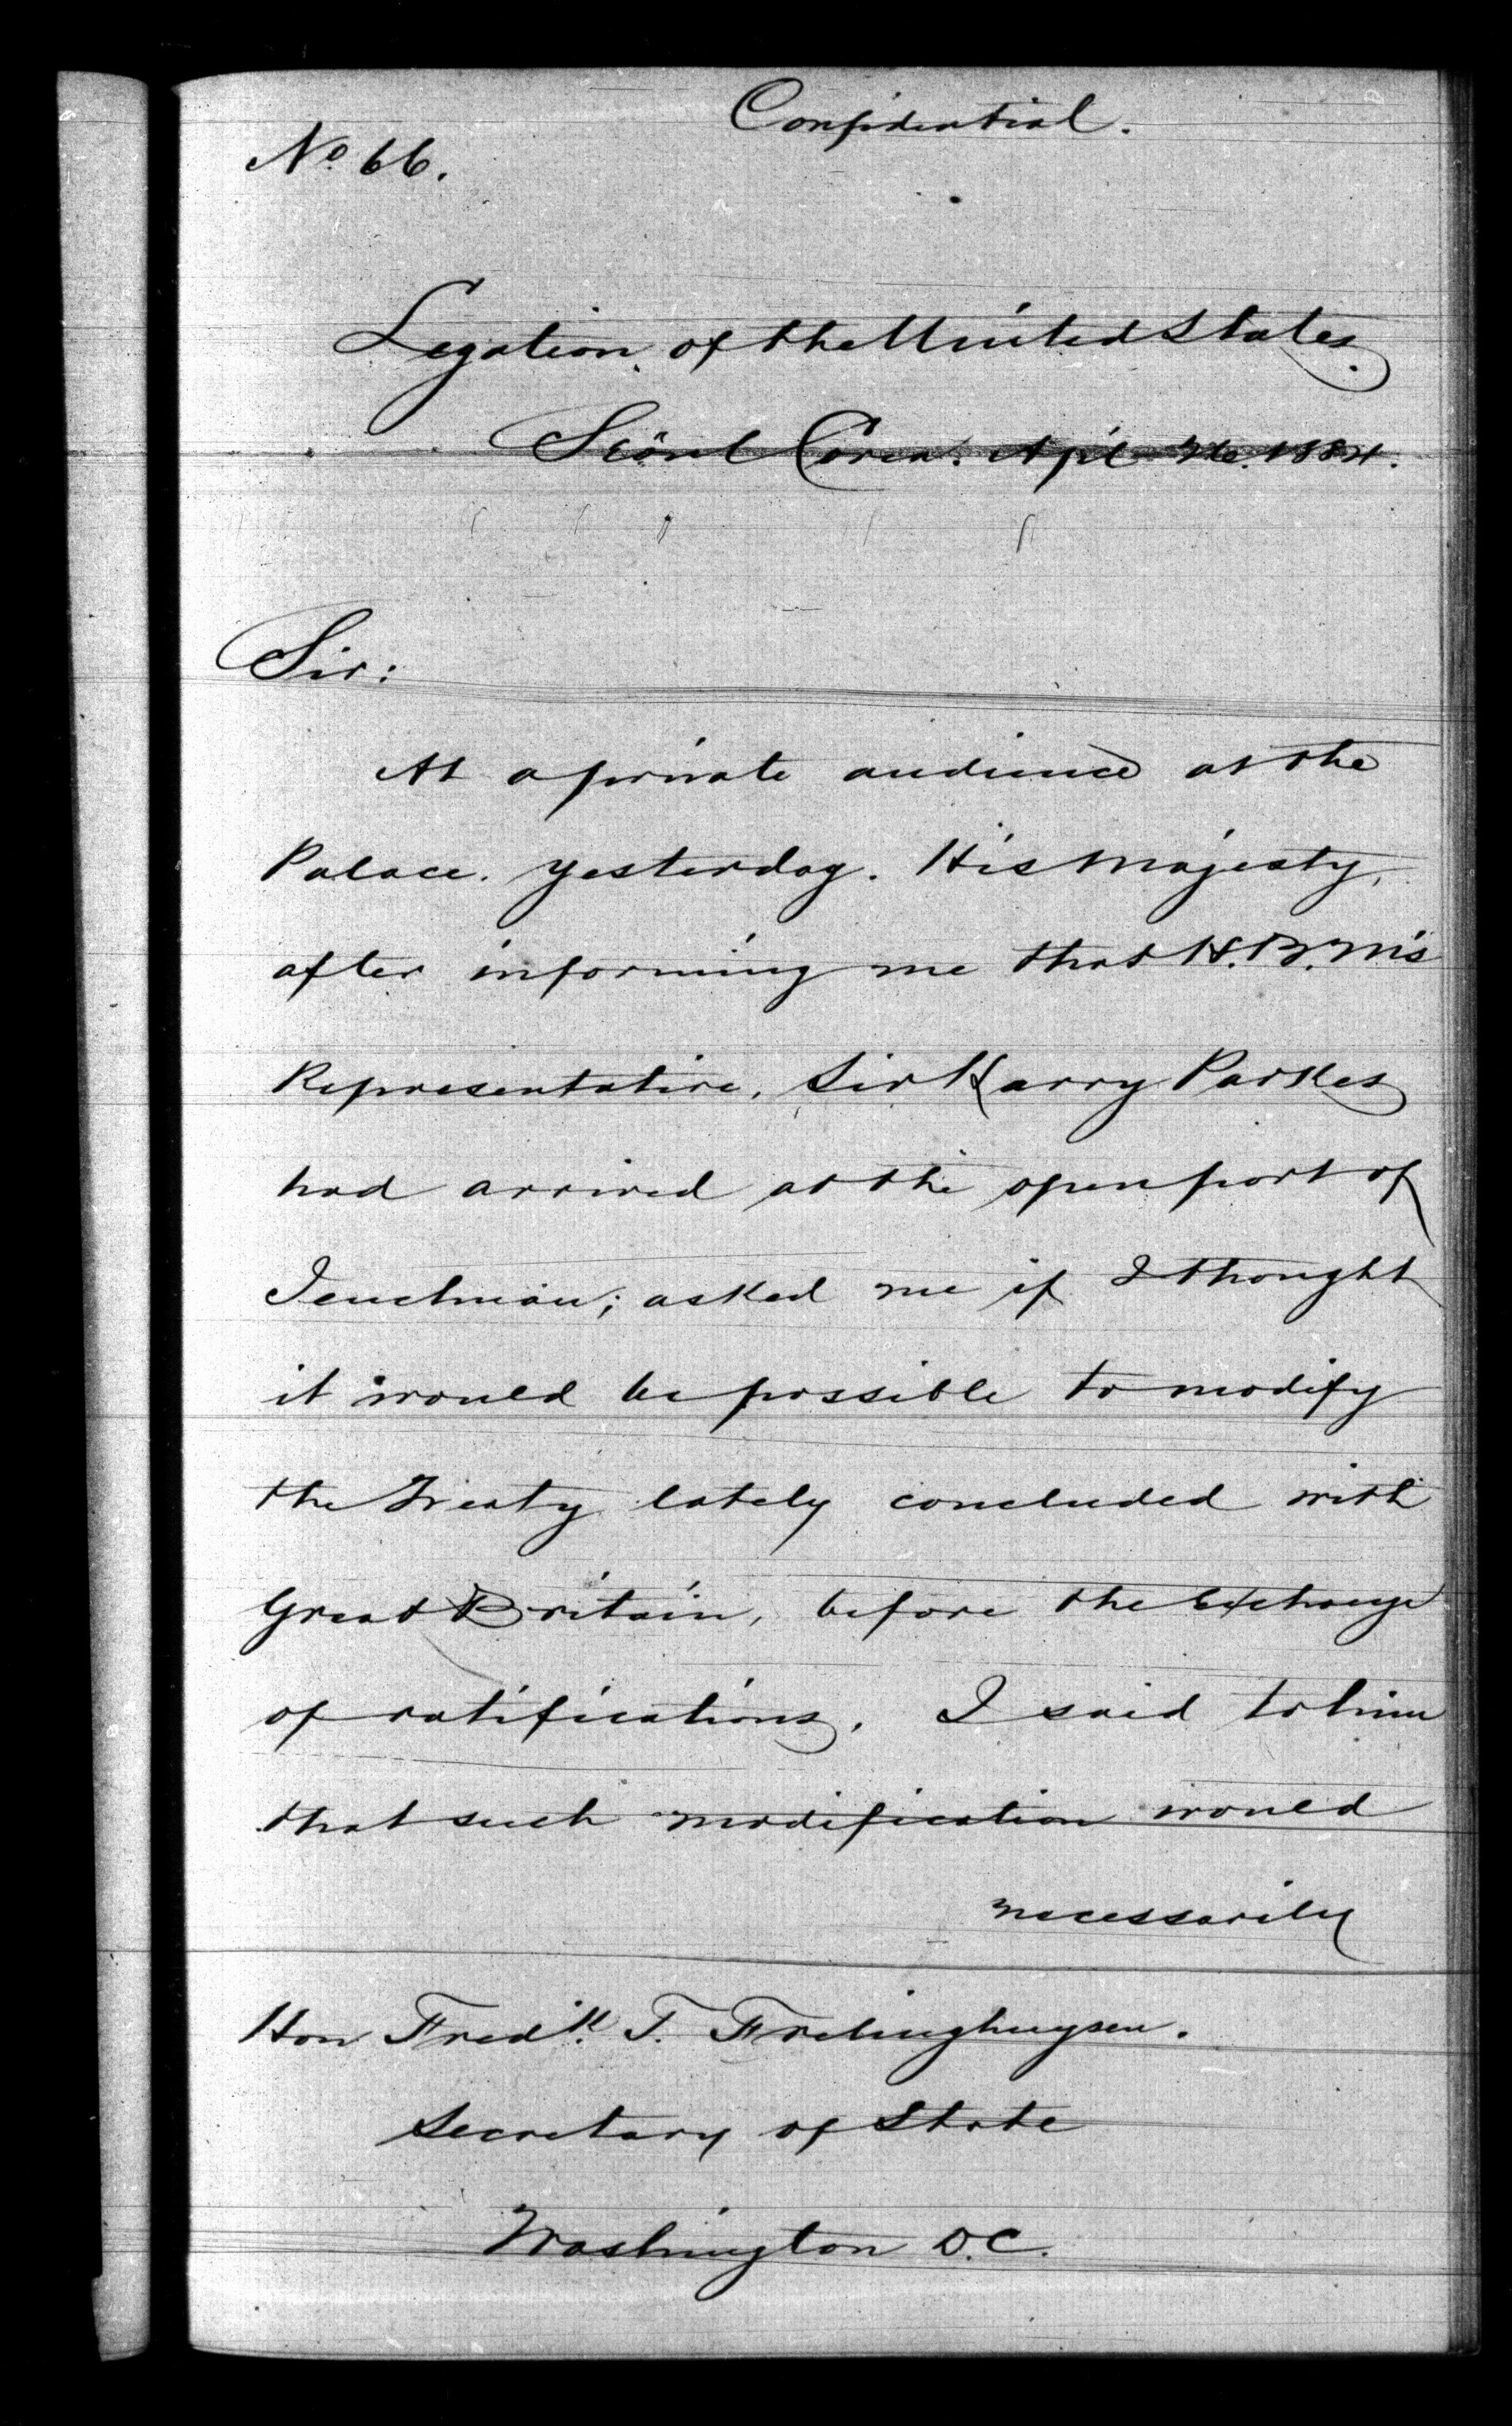 Confidential.
No 66.
Legation of the United States.
Seöul Corea. Apl 26. 1884.
Sir:
At a private audience at the
Palace. yesterday. His Majesty,
after informing me that H.B.M's
Representative, Sir Harry Parkes
had arrived at the open port of
asked me if I thought
it would be possible to modify
the Treaty lately concluded with
Great Britain, before the Exchange
of ratifications. I said to him
that such modification would
necessarily
Hon Fredk. T. Frelinghuysen.
Secretary of State
Washington D.C.